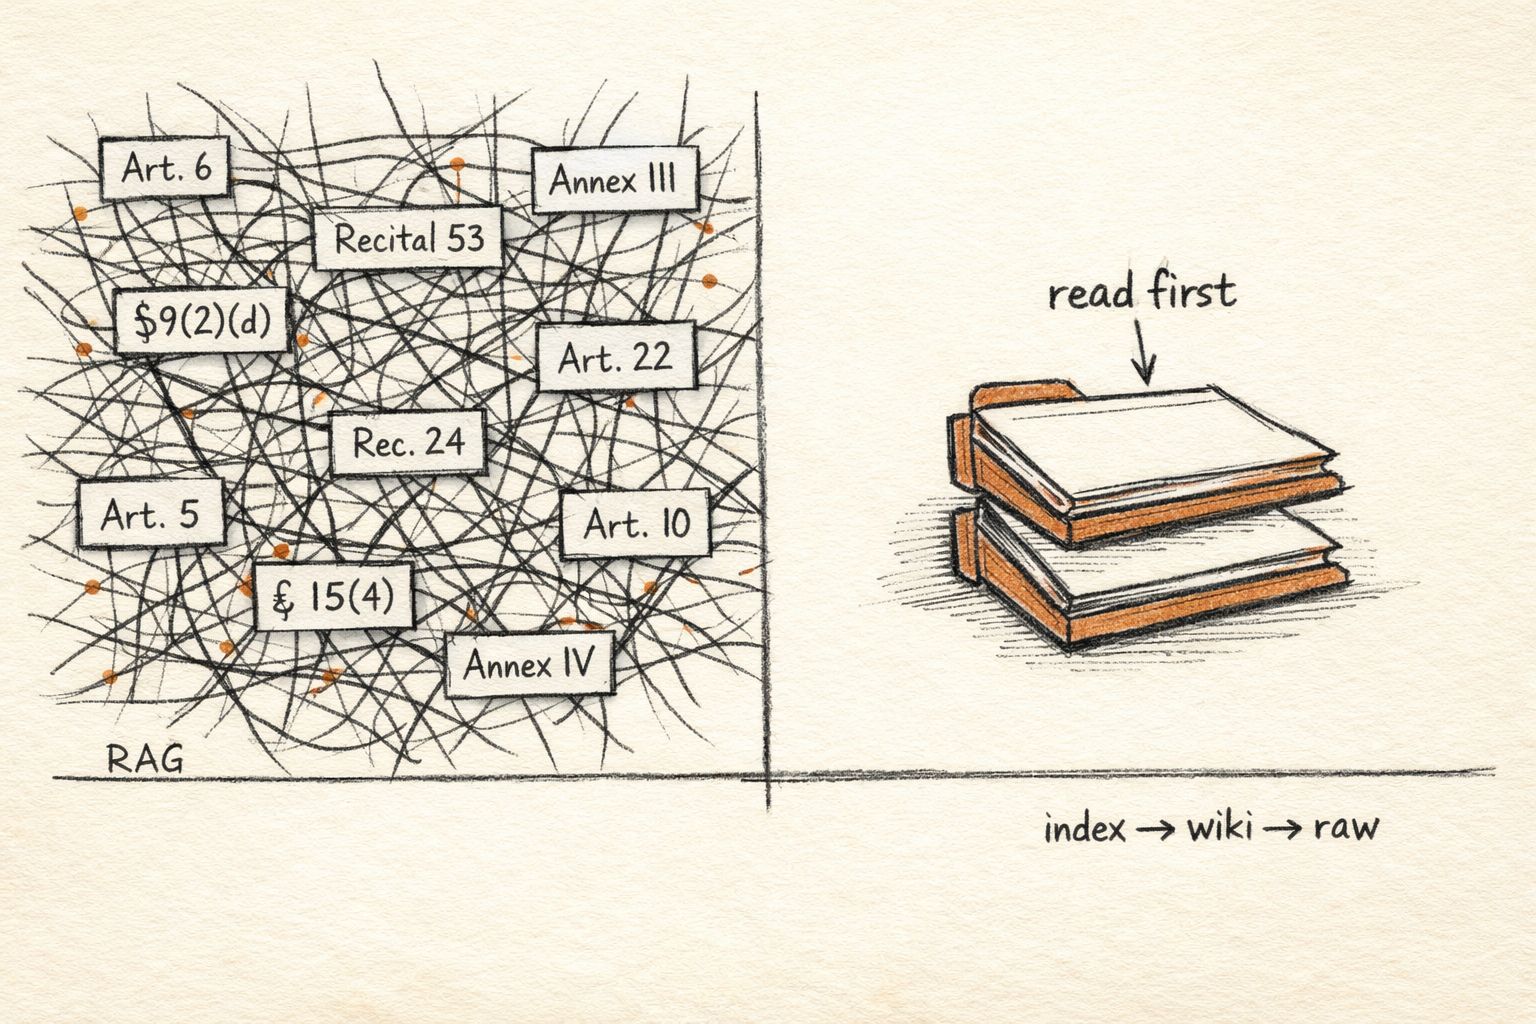 Art. 6
Annex III
Recital 53
$9(2)(d)
Art. 22
Rec. 24
Art. 5
Art. 10
15(4)
Annex IV
RAG
read first
index → wiki → raw